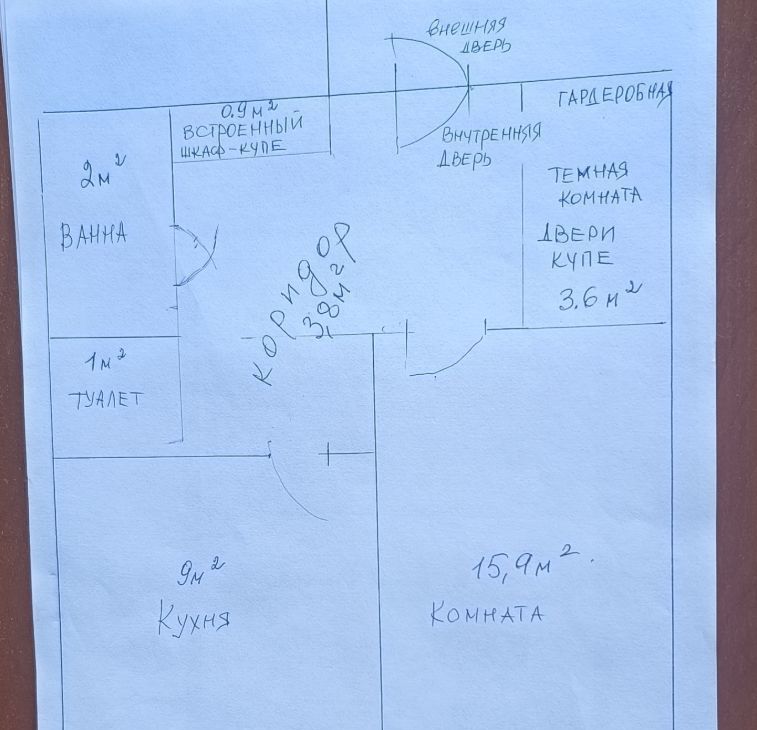 ВНЕШНЯЯ
ДВЕРЬ
ГАРДЕРОБНАЯ
0.9 м²
ВСТРОЕННЫЙ
ШКАФ-КУПЕ
ВНУТРЕННЯЯ
ДВЕРЬ
2м²
ВАННА
ТЕМНАЯ
КОМНАТА
ДВЕРИ
КУПЕ
3.6 м²
КОРИДОР
3,8 м²
1м²
ТУАЛЕТ
9м²
КУХНЯ
15,9м².
КОМНАТА